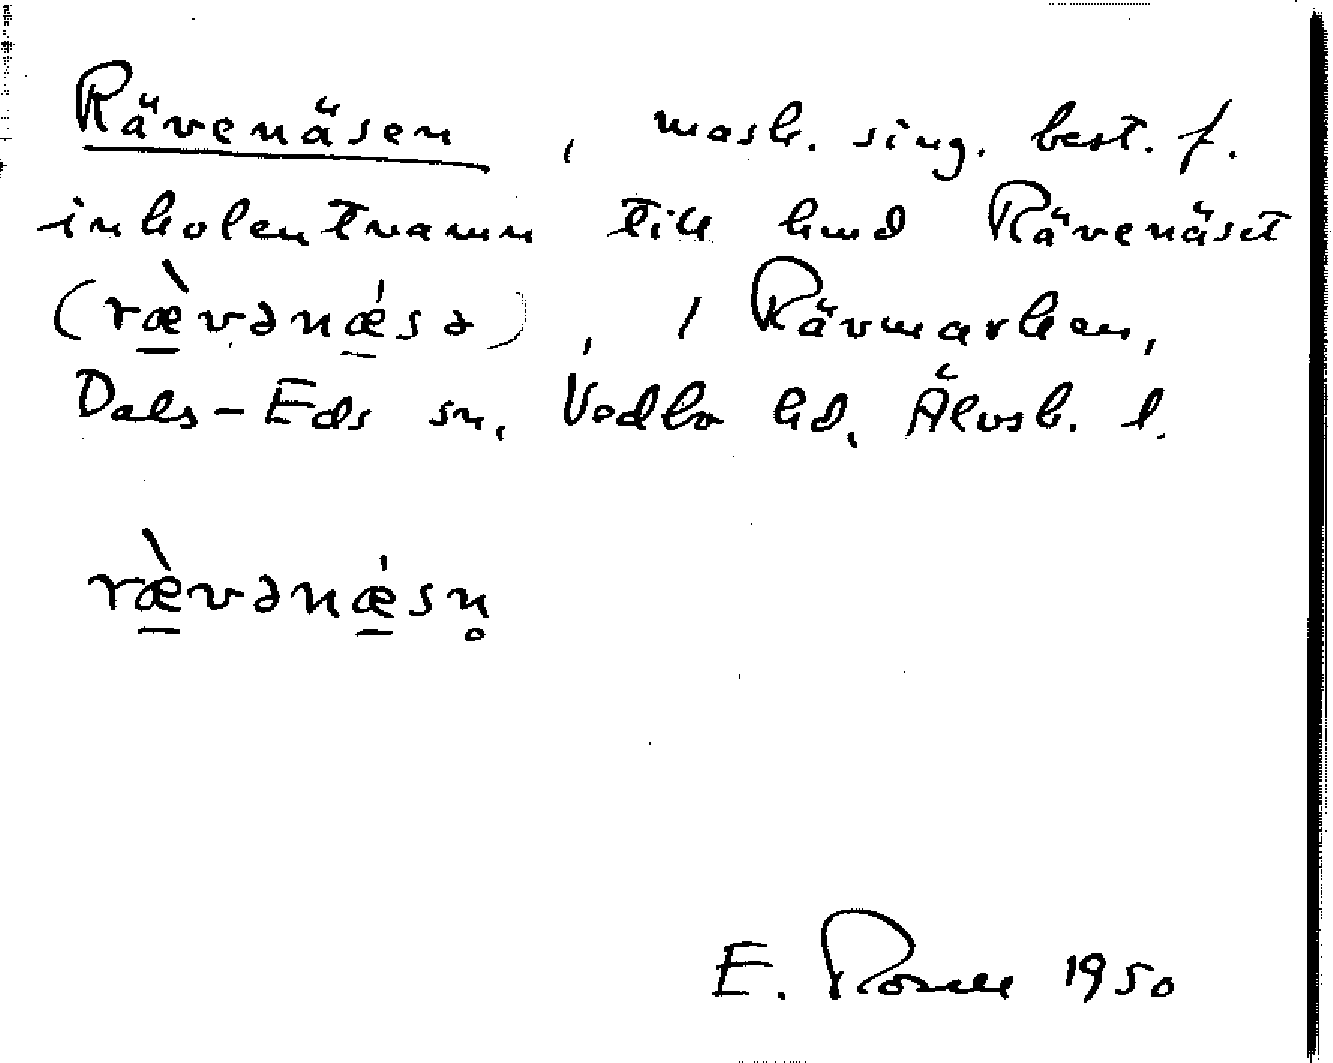 Rävenäsen, mask. sing. best. f.
inkolentnamn till hmd Rävenäset
(ræ̠̀vənǽ̠sə), i Rävmarken,
Dals-Eds sn, Vedbo hd, Älvsb. l.
ræ̠̀vənǽ̠sn̥
E. 1950